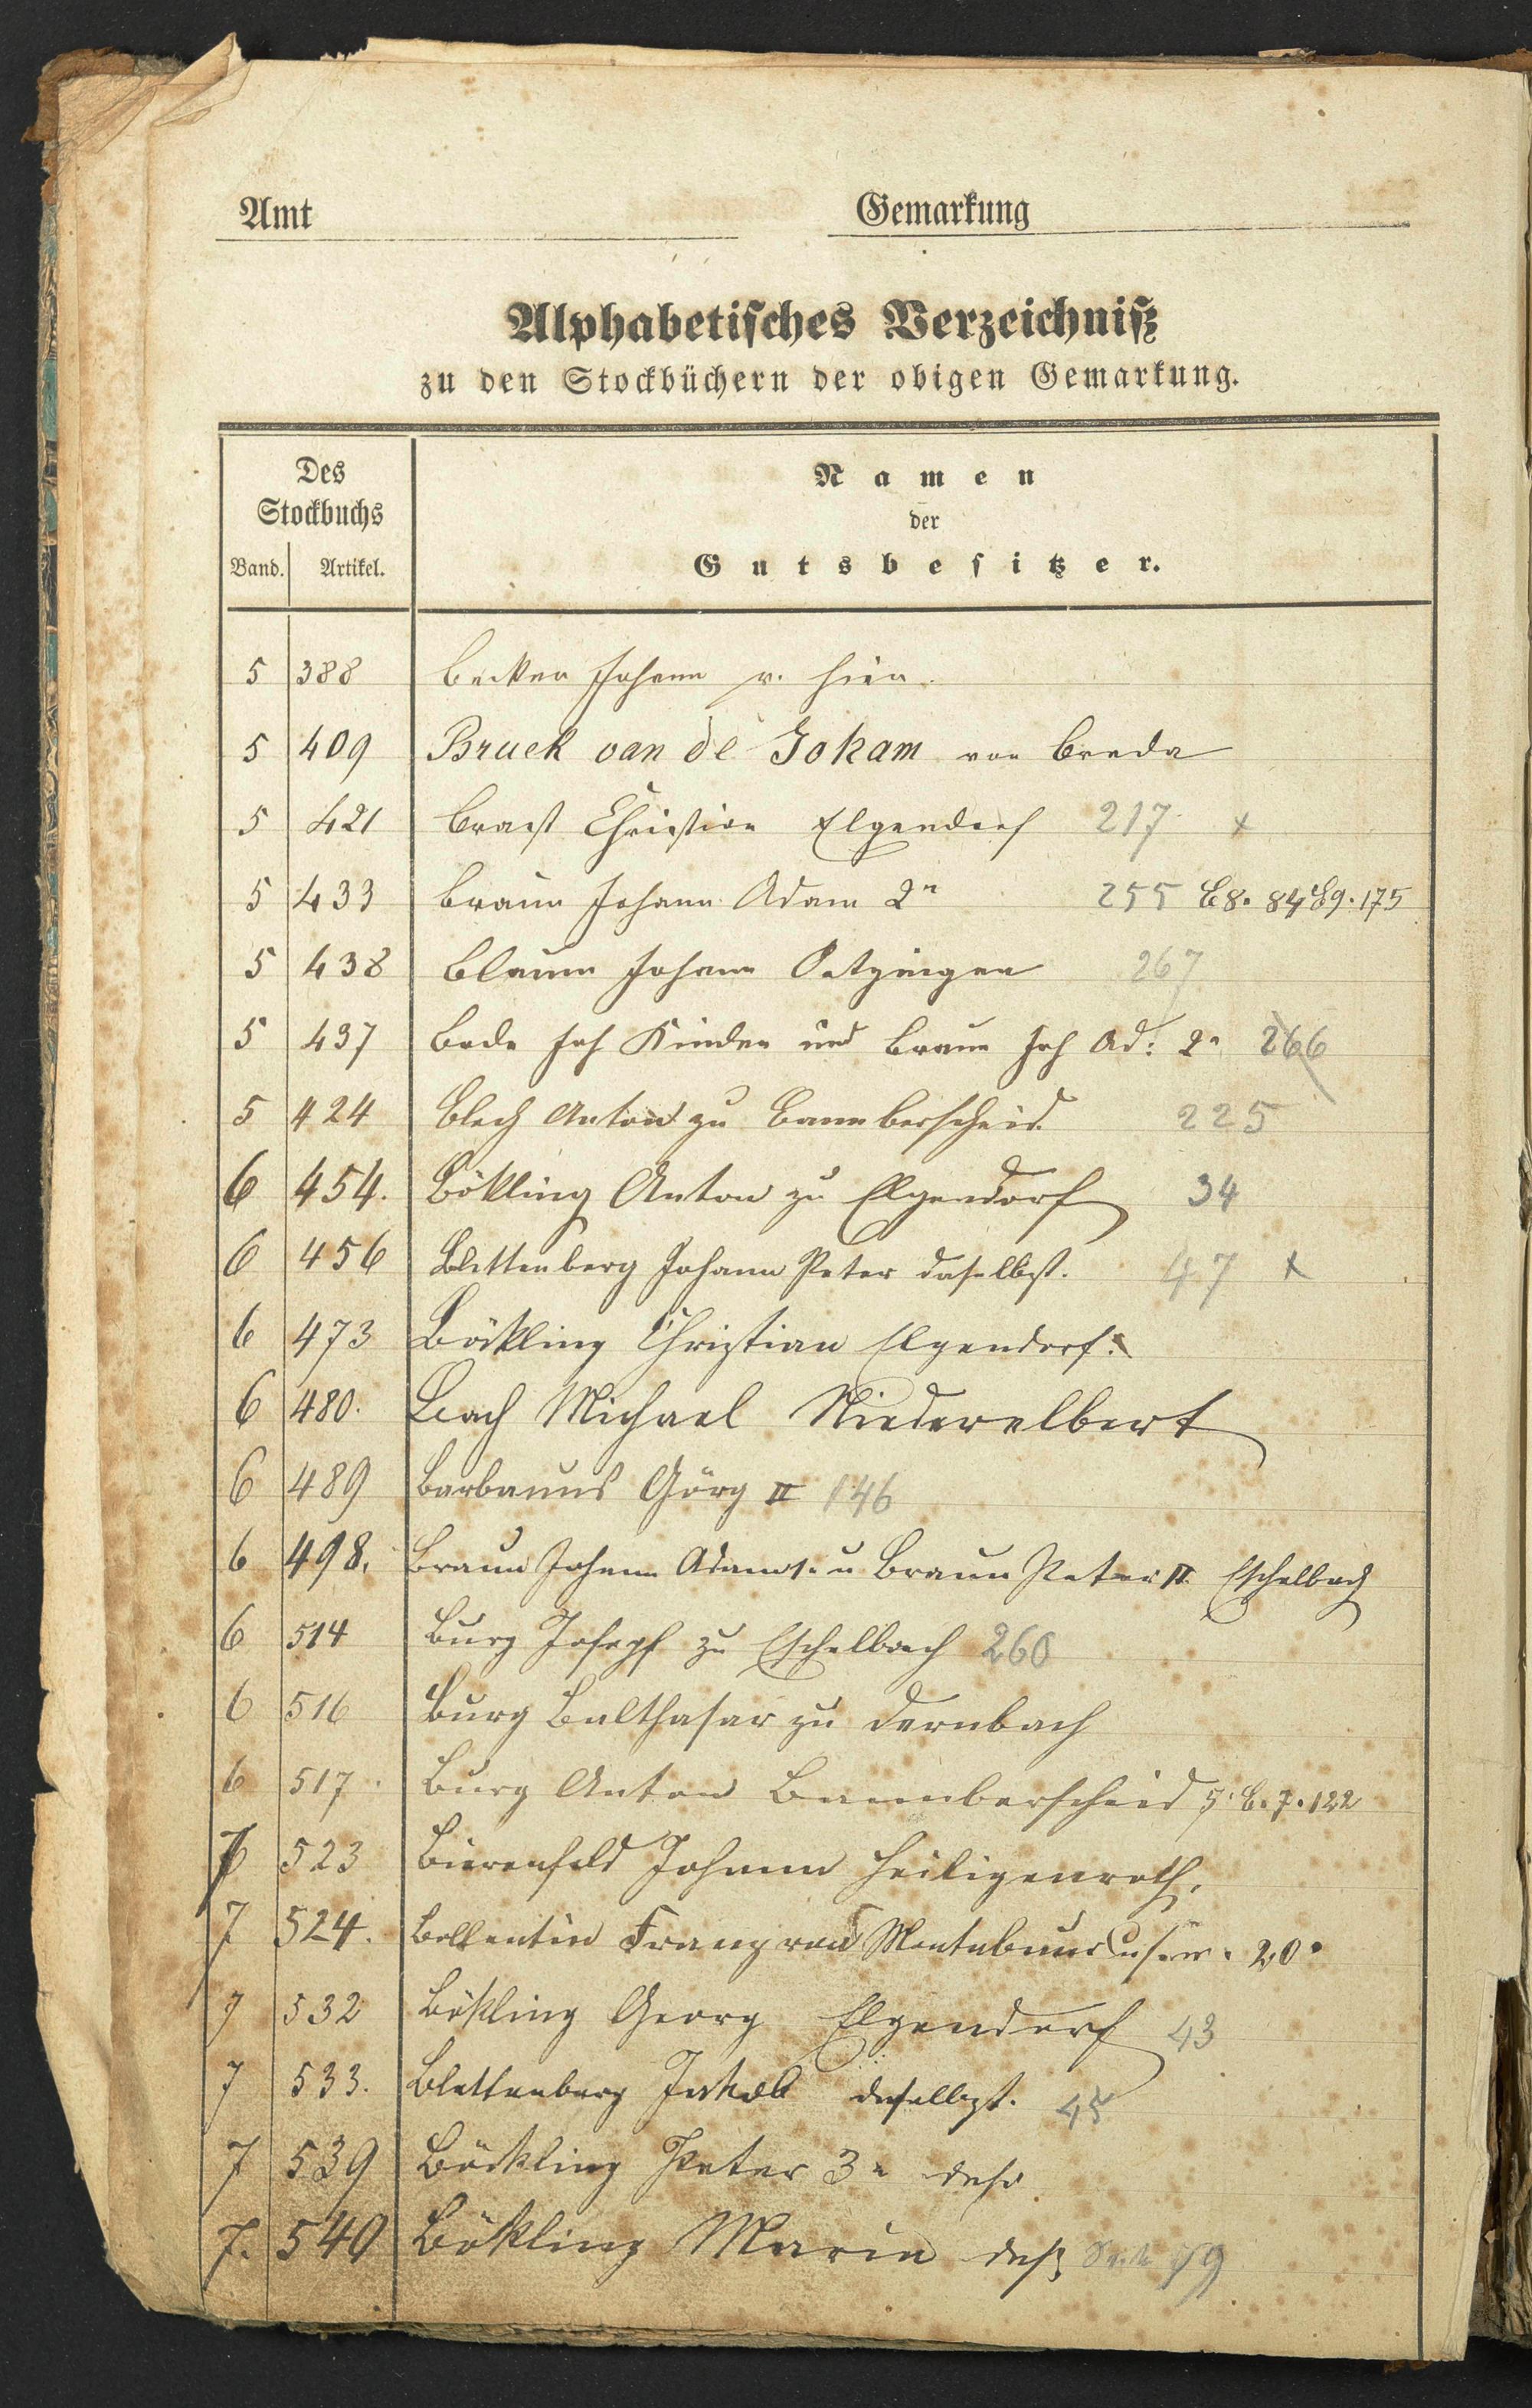 Amt Gemarkung
Alphabetisches Verzeichniß
zu den Stockbüchern der obigen Gemarkung.
Des
Stockbuchs
Band. Artikel.
Namen
der
Gutsbesitzer.
5 388 Becker Johann v. hier.
5 409 Bruck van de Jokam von Breda
5 421 Christian Elgendorf 217 x
5 433 Braun Johann Adam 2n 255 B8. 84 B9. 175
5 438 Blaum Johann Oetzingen 267
5 437 Bode Joh Kinder und Braun Joh Ad: 2n 266
5 424 Blech Anton zu Bannberscheid 225
6 454. Bökling Anton zu Elgendorf 34
6 456 Blettenberg Johann Peter daselbst. 47 x
6 473 Böckling Christian Elgendorf.
6 480. Bach Michael Niederelbert
6 489 Barbanus Görg II 146
6 498. Braun Johann Adam 1. u Braun Peter II. Eschelbach
6 514 Burg Joseph zu Eschelbach 260
6 516 Burg Balthasar zu Dernbach
6 517. Burg Anton Bannberscheid B. 7. 122
7 523 Bierenfeld Johann Heiligenroth.
7 524. Bellentin Franz von Montabaur 20.
7 532 Bökling Georg Elgendorf 43
7 533. Blettenberg Jakob daselbst. 45
7 539 Böckling Peter 3n das.
7. 540 Bökling Maria das. 79